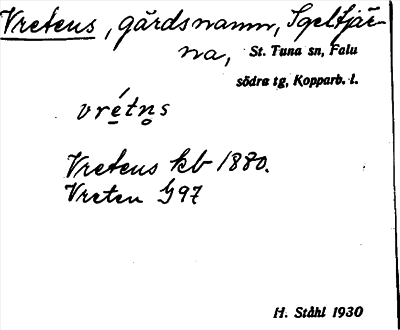 Vretens, gårdsnamn, Igeltjär-
na, St. Tuna sn, Falu
södra tg, Kopparb. l.
vrétn̥s
Vretens kb 1880.
Vreten G97
H. Ståhl 1930